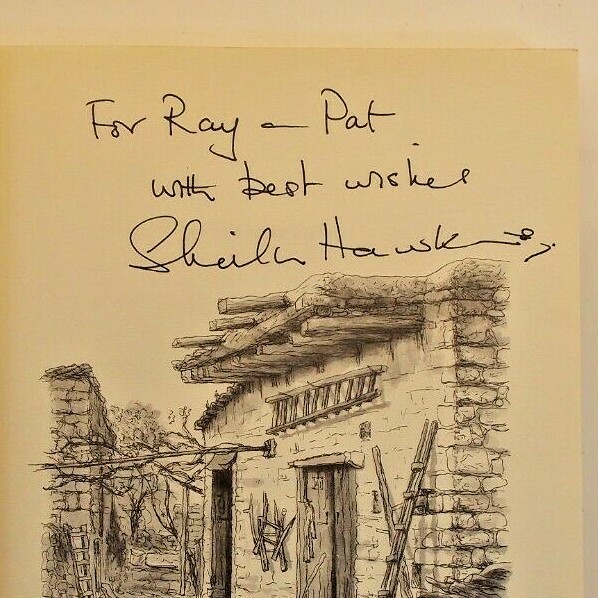 For Ray - Pat
with best wishes
Sheila Hawkins